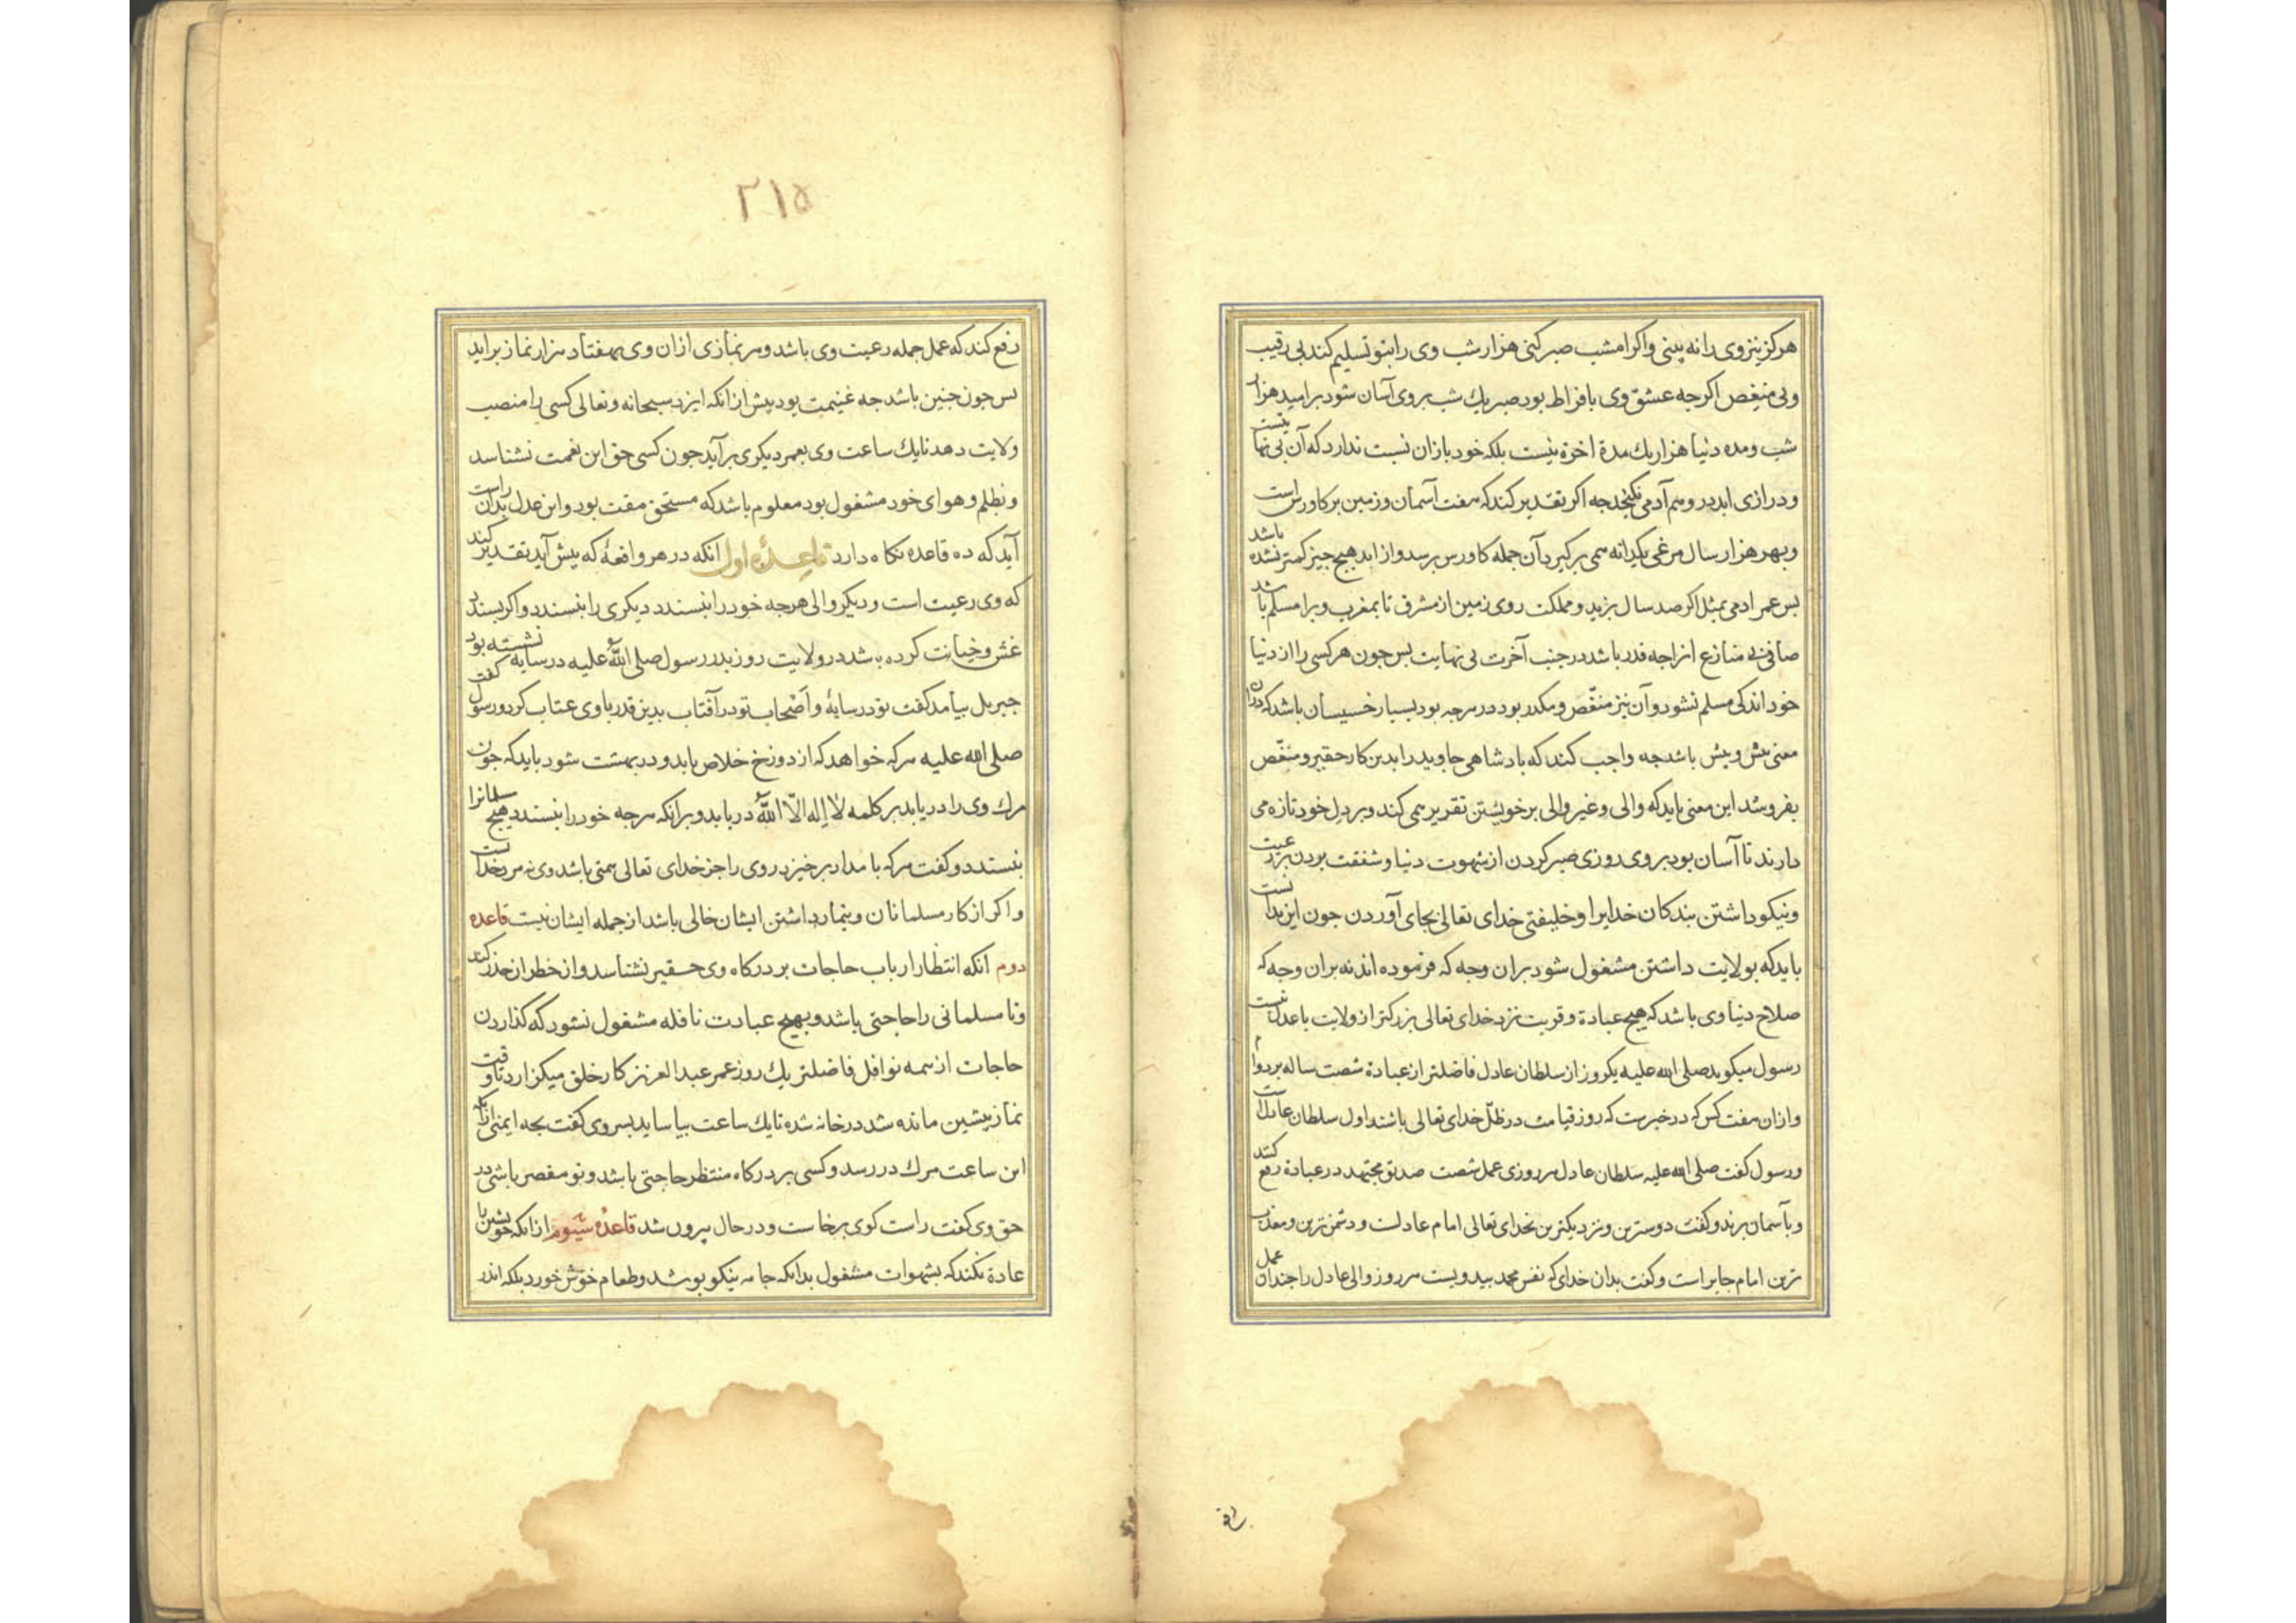 هرکز نیز وی را نه بینی واکر امشب صبر کنی هزار شب وی را بتو تسلیم کند بی رقیب
وبی منغص اکرچه عشق وی بافراط بود صبر یك شب بروی آسان شود بر امید هزار
شب ومده دنیا هزار یك مدة اخرة نیست بلکه خود بازان نسبت ندارد که آن بی نهایتست
ودرازی ابد در وهم آدمی نکنجد چه اکر تقدیر کند که هفت آسمان وزمین بر کاورس است
وبهر هزار سال مرغی یکدانه همی بر کیرد آن جمله کاورس برسد واز ابد هیچ چیز کمتر نشده باشد
بس عمر ادمی بمثل اکر صد سال بزید ومملکت روی زمین از مشرق تا بمغرب ویرا مسلم باشد
صافی بی منازع انرا چه قدر باشد در جنب آخرت بی نهایت بس چون هر کسی را از دنیا
خود اندکی مسلم نشود وآن نیز منغّص ومکدر بود در هرچه بود بسیار خسیسان باشد که دران
معنی بیش وبیش باشد چه واجب کند که بادشاهی جاوید را بدین کار حقیر ومنغّص
بفروشد این معنی باید که والی وغیر والی بر خویشتن تقریر همی کند وبر دل خود تازه می
دارند تا آسان بود بروی روزی صبر کردن از شهوت دنیا وشفقت بردن بر رعیت
ونیکو داشتن بندکان خدایرا وخلیفتی خدای تعالی بجای آوردن چون این بدانست
باید که بولایت داشتن مشغول شود بران وجه که فرموده اند نه بران وجه که
صلاح دنیا وی باشد که هیچ عبادة وقربت نزد خدای تعالی بزرکتر از ولایت با عدل نیست
رسول میکوید صلی الله علیه یکروز از سلطان عادل فاضلتر از عبادة شصت ساله بردوام
وازان هفت کس که در خبرست که روز قیامت در ظلّ خدای تعالی باشند اول سلطان عادلست
ورسول کفت صلی الله علیه سلطان عادل هر روزی عمل شصت صدیق مجتهد در عبادة رفع کنند
وبآسمان برند وکفت دوسترین ونزدیکترین بخدای تعالی امام عادلست ودشمن ترین ومعذب
ترین امام جابر است وکفت بدان خدای که نفس محمد بید ویست هر روز والی عادل را چندان عمل
رفع
۲۱۵
رفع کند که عمل جمله رعیت وی باشد وهر نمازی ازان وی بهفتاد هزار نماز براید
بس چون چنین باشد چه غنیمت بود بیش ازانکه ایزد سبحانه وتعالی کسی را منصب
ولایت دهد تا یك ساعت وی بعمر دیکری برآید چون کسی حق این نعمت نشناسد
وبظلم وهوای خود مشغول بود معلوم باشد که مستحق مقت بود واین عدل بدان راست
آید که ده قاعده نکاه دارد قاعدۀ اول آنکه در هر واقعۀ که بیش آید تقدیر کند
که وی رعیت است ودیکر والی هرچه خود را نبسندد دیکری را نبسندد واکر بسندد
غش وخیانت کرده باشد در ولایت روز بدر رسول صلی اللّه علیه در سایه نشسته بود
جبریل بیامد کفت تو در سایۀ واَصْحاب تو در آفتاب بدین قدر باوی عتاب کرد ورسول کفت
صلی الله علیه هرکه خواهد که از دوزخ خلاص یابد ودر بهشت شود باید که چون
مرك وی را دریابد بر کلمه لا اِله الاّ اللّه دریابد وبرانکه هرچه خود را نبسندد هیچ مسلمانرا
نبسندد وکفت هرکه بامداد برخیزد وی را جز خدای تعالی همتی باشد وی نه مرد خداست
واکر از کار مسلمانان وتیمار داشتن ایشان خالی باشد از جمله ایشان نیست قاعده
دوم آنکه انتظار ارباب حاجات بر درکاه وی حقیر نشناسد واز خطر ان حذر کند
وتا مسلمانی را حاجتی باشد وبهیچ عبادت نافله مشغول نشود که کذاردن
حاجات از همه نوافل فاضلتر یك روز عمر عبد العزیز کار خلق میکزارد تا وقت
نماز بیشین مانده شد در خانه شد تا یك ساعت بیاساید بسر وی کفت بچه ایمنی ازانکه
این ساعت مرك در رسد وکسی بر درکاه منتظر حاجتی باشد وتو مقصر باشی در
حق وی کفت راست کوی برخاست ودر حال بیرون شد قاعدۀ سیوم ازانکه خویشتن را
عادة نکند که بشهوات مشغول بدانکه جامه نیکو بوشد وطعام خوش خورد بلکه اندر